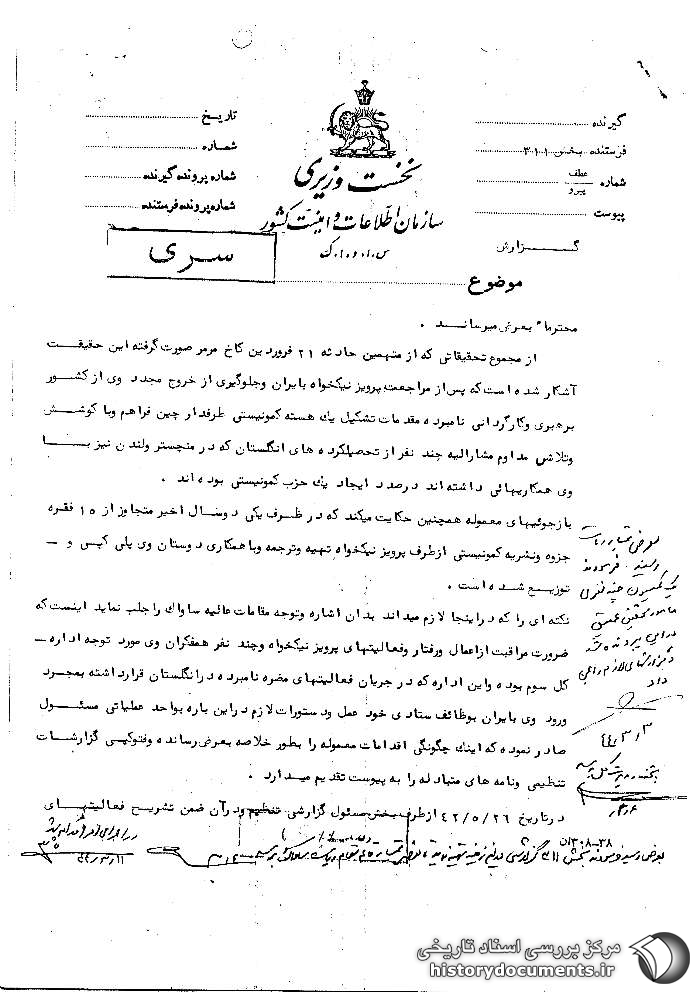 گیرنده
فرستنده بخش ۳۰۱
شماره عطف
پیرو
پیوست
گزارش
نخست وزیری
سازمان اطلاعات و امنیت کشور
س.ا.و.ا.ک
تاریخ
شماره
شماره پرونده گیرنده
شماره پرونده فرستنده
سری
موضوع
محترما" بعرض میرساند .
از مجموع تحقیقاتی که از متهمین حادثه ۲۱ فروردین کاخ مرمر صورت گرفته این حقیقت
آشکار شده است که پس از مراجعت پرویز نیکخواه بایران وجلوگیری از خروج مجدد وی از کشور
برهبری وکارگردانی نامبرده مقدمات تشکیل یک هسته کمونیستی طرفدار چین فراهم وبا کوشش
وتلاش مداوم مشارالیه چند نفر از تحصیلکرده های انگلستان که در منچستر ولندن نیز با
وی همکاریهائی داشته اند درصدد ایجاد یک حزب کمونیستی بوده اند .
بازجوئیهای معموله همچنین حکایت میکند که در ظرف یکی دوسال اخیر متجاوز از ۱۵ فقره
جزوه ونشریه کمونیستی ازطرف پرویز نیکخواه تهیه وترجمه وبا همکاری دوستان وی پلی کپی و -
توزیع شده است .
نکته ای را که دراینجا لازم میداند بدان اشاره وتوجه مقامات عالیه ساواک را جلب نماید اینست که
ضرورت مراقبت ازاعمال ورفتار وفعالیتهای پرویز نیکخواه وچند نفر همفکران وی مورد توجه اداره -
کل سوم بوده واین اداره که در جریان فعالیتهای مضره نامبرده درانگلستان قرارداشته بمجرد
ورود وی بایران بوظائف ستادی خود عمل ودستورات لازم دراین باره بواحد عملیاتی مسئول
صادر نموده که اینک چگونگی اقدامات معموله را بطور خلاصه بعرض رسانده وفتوکپی گزارشات
تنظیمی ونامه های متبادله را به پیوست تقدیم میدارد .
درتاریخ ۴۲/۵/۲۶ ازطرف بخش مسئول گزارشی تنظیم ودرآن ضمن تشریح فعالیتهای
۰۱۳۰۸-۳۸
مرکز بررسی اسناد تاریخی
historydocuments.ir